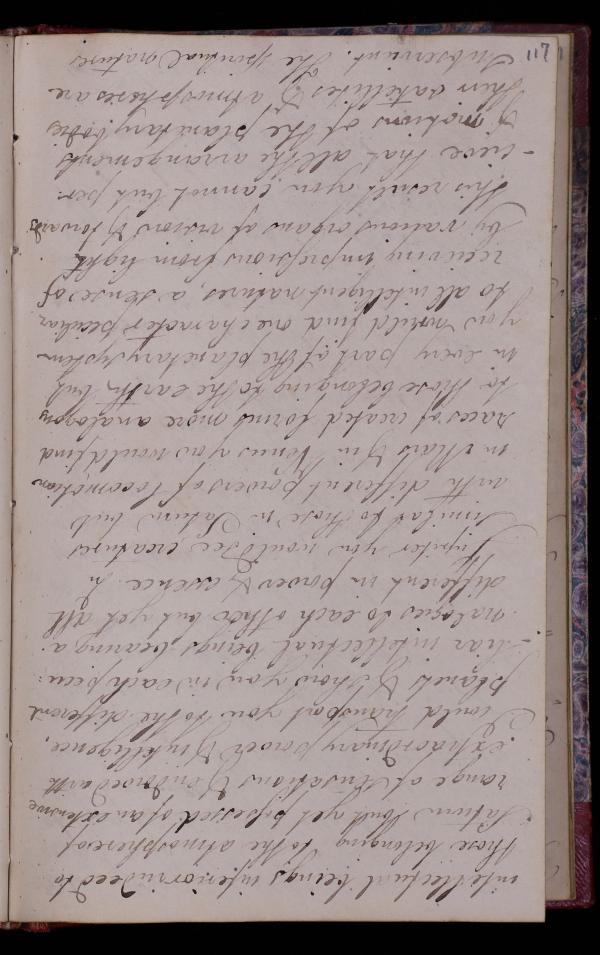 117
intellectual beings inferior indeed to
those belonging to the atmosphere of
Saturn but yet possessed of an extensive
range of sensations & endowed with
extraordinary power & intelligence.
I could transport you to the different
planets & show you in each pecu:
-liar intellectual beings bearing a-
-nalogies to each other but yet all
different in power & essence. In
Jupiter you would see creatures
similar to those in Saturn but
with different powers of locomotion
in Mars & in Venus you would find
races of created forms more analogous
to those belonging to the earth but
in every part of the planetary system
you would find one character peculiar
to all intelligent natures, a sense of
receiving impressions from light
by various organs of vision & towards
this result you cannot but per:
-ceive that all the arrangements
& motions of the planetary bodies
their satellites & atmospheres are
subservient. The spiritual natures